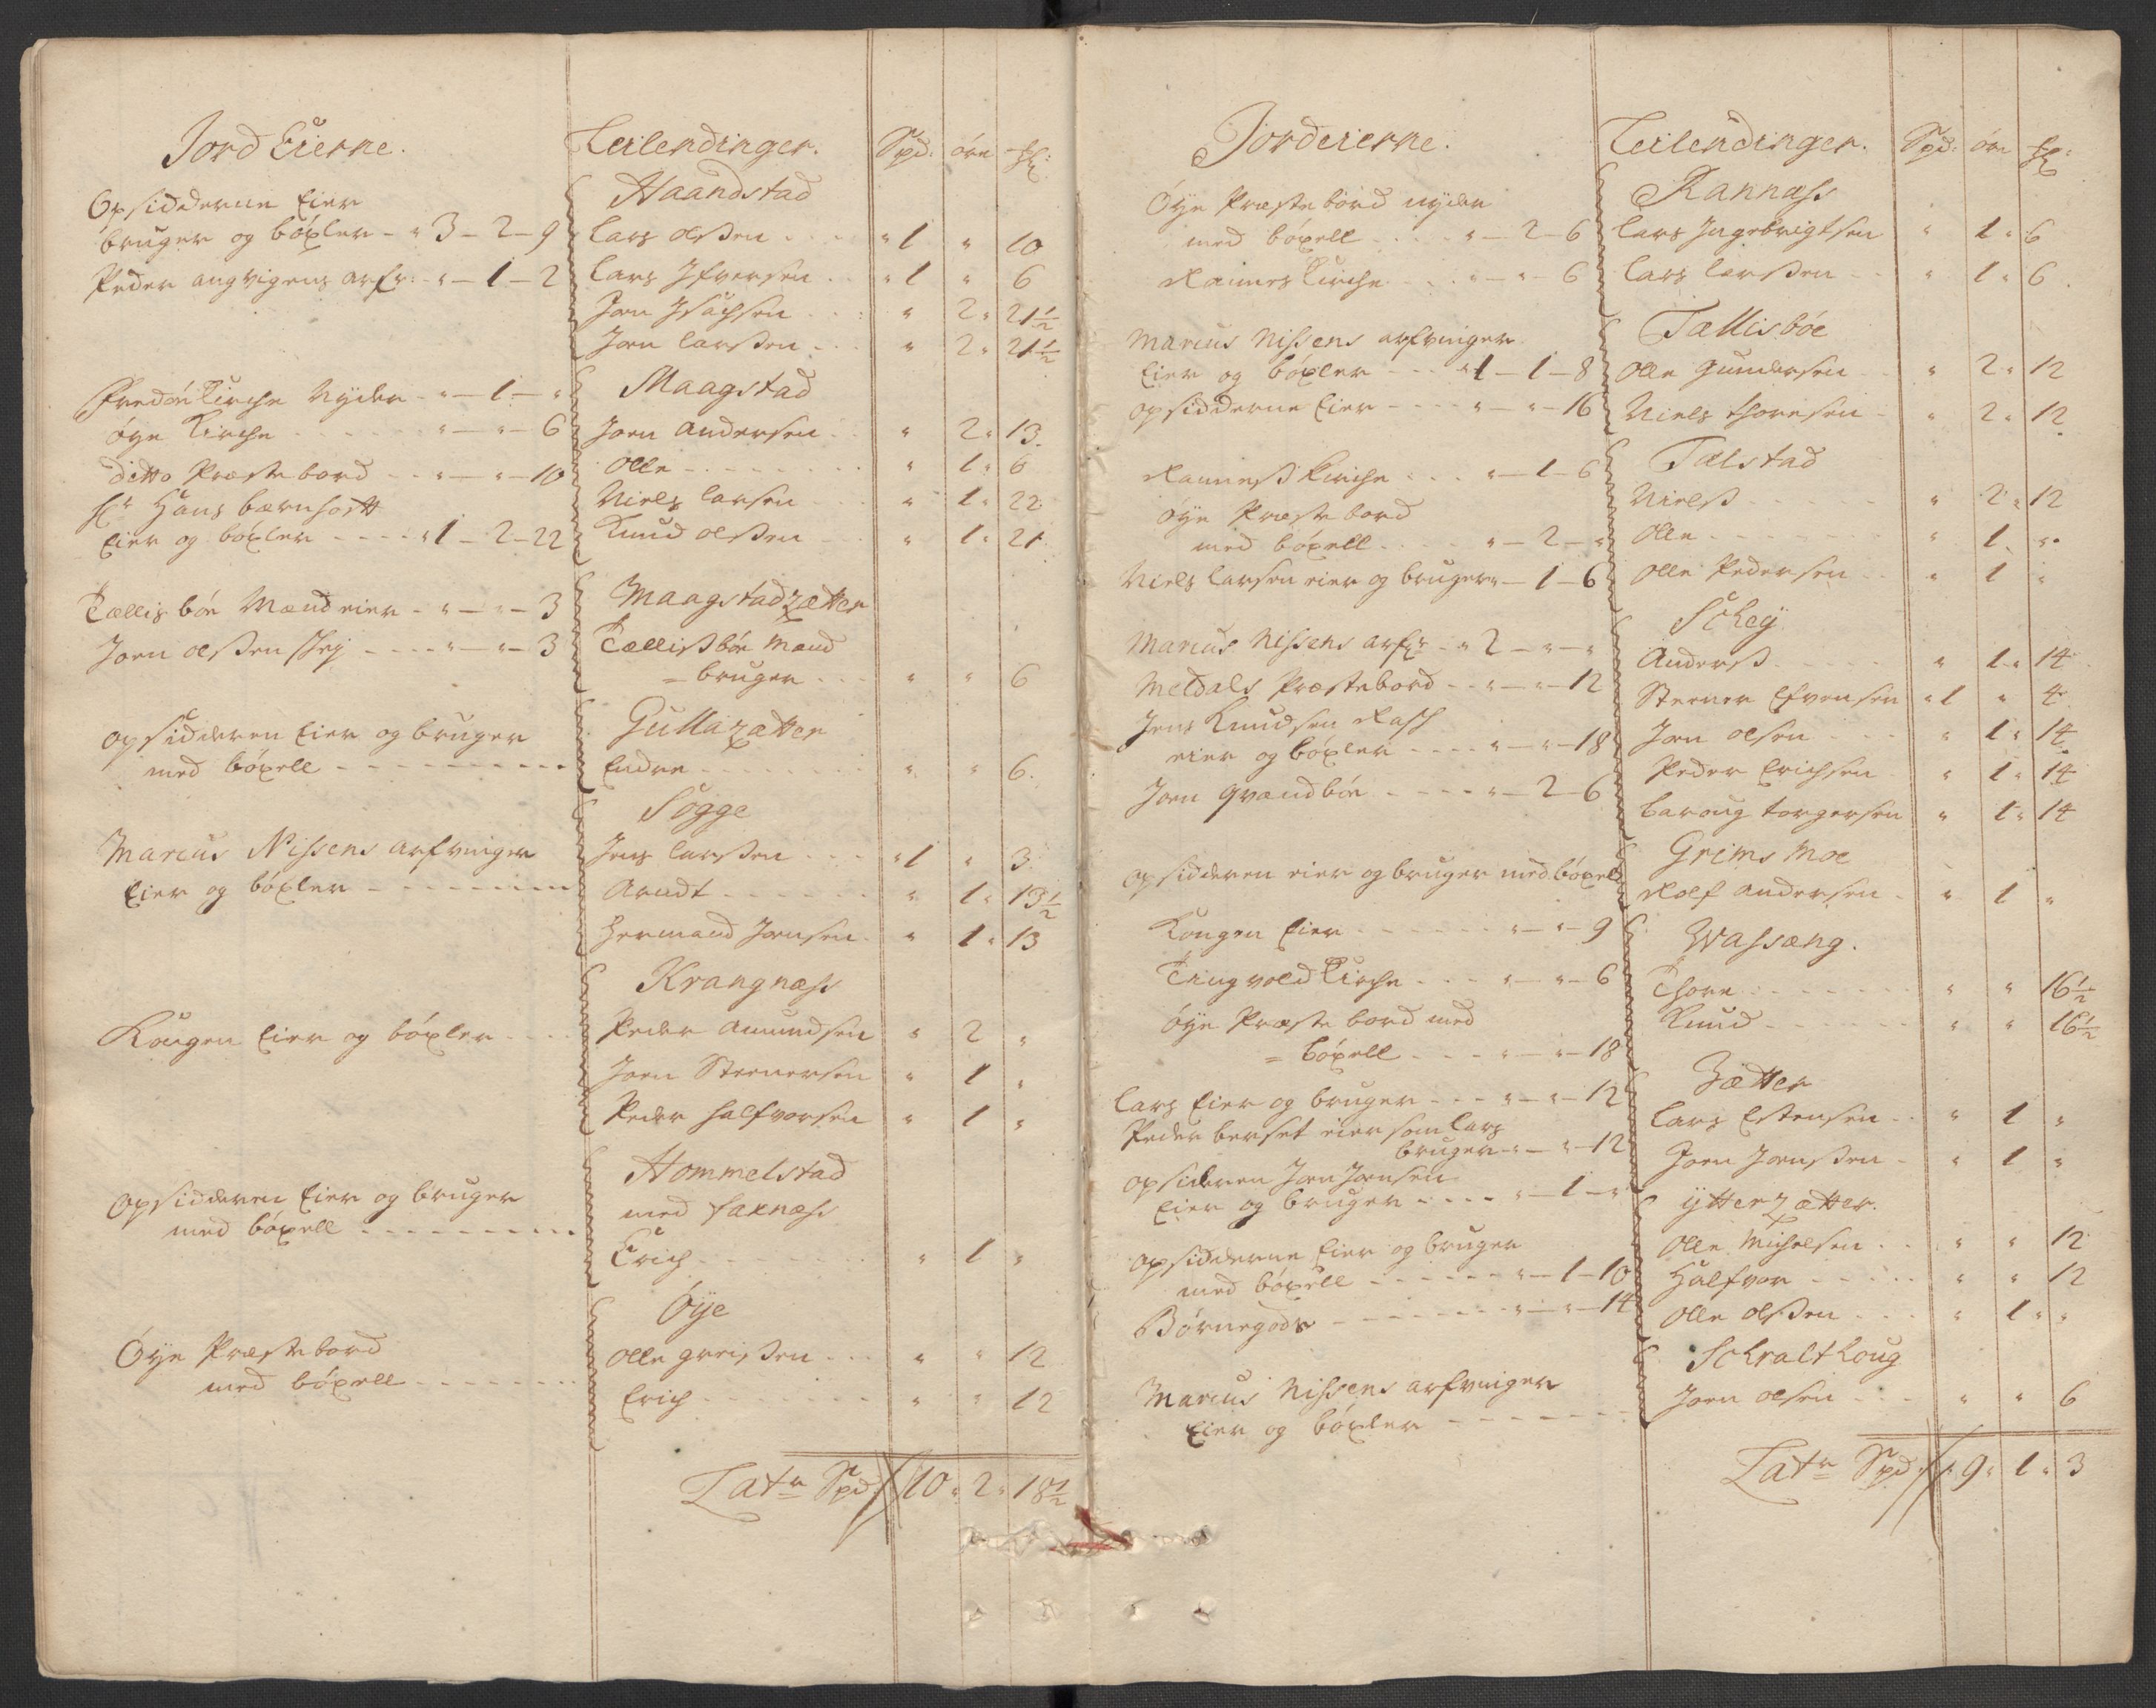 Jord Eierne.
Opsidderne Eier
bruger og böxler - " 3 - 2 - 9
Peder angvigens arfv: - " - 1 - 2
Fredöe Kirche Nyder - " - 1 - "
öye Kirche - " - " - 6
ditto Præstebord - " - " - 10
Hr Hans bærnhoft
Eier og böxler - " 1 - 2 - 22
Tællisböe Mand eier - " - " - 3
Joen olßen Schej - " - " - 3
opsidderen Eier og bruger
med böxell
Marcus Nissens arfvinger
Eier og böxler
Kongen Eier og böxler
opsidderen Eier og bruger
med böxell
Öye Præstebord
med böxell
Leilendinger. Spd: öre ▢
Haandstad
Lars olßen " 1 " 10
Lars Ifversen " 1 " 6
Jon Isachsen " 2 " 21½
Jon larßen " 2 " 21½
Maagstad
Joen Andersen " 2 " 13
Olle " 1 " 6
Niels larsen " 1 " 22
Knud olßen " 1 " 21
Maagstadzætter
Tællißböe Mand
= bruger " " 6
Gullazætter
Endre " " 6
Sögge
Jens larßen " 1 " 3
Arndt " 1 " 13½
Hermand Jonsen " 1 " 13
Krangnæss
Peder Amundsen " 2 "
Joen Steenersen " 1 "
Peder Halfvorsen " 1 "
Hommelstad
med faxnæss
Erich " 1 "
Öye
Olle greißen " " 12
Erich " " 12
Latr Spd 10 " 2 " 18½
Jordeierne.
Öye Præstebord nyder
med böxell " - 2 - 6
Rannes Kirche " - " - 6
Marcus Nissens arfvinger
Eier og böxler " 1 - 1 - 8
opsidderne Eier " - " - 16
Ranneß Kirche " - 1 - 6
öye Præstebord
med böxell " - 2 - "
Niels larsen eier og bruger " - 1 - 6
Marcus Nissens arfv: - " 2 - " - "
Meldals Præstebord - " - " - 12
Jens Knudsen Rasch
eier og böxler " - " - 18
Joen qvandböe " - 2 - 6
opsidderen eier og bruger med böxel
Kongen Eier " - " - 9
Tingvold Kirche " - " - 6
öye Præstebord med
= böxell " - " - 18
Lars Eier og bruger - " - " - 12
Peder berset eier som lars
bruger - " - " - 12
opsideren Jon Jonsen
Eier og bruger " - 1 - "
opsidderne Eier og bruger
med böxell " - 1 - 10
Börnegods " - " - 14
Marcus Nissens arfvinger
Eier og böxler
Leilendinger. Spd: öre
Rannæss
Lars Ingebrigtsen " 1 " 6
Lars larßen " 1 " 6
Tællisböe
Olle Gundersen " 2 " 12
Niels thoresen " 2 " 12
Tælstad
Nielß " 2 " 12
Olle " 1 "
Olle Pedersen " 1 "
Schey
Anderß " 1 " 14
Steener Efvensen " 1 " 4
Jon olsen " 1 " 14
Peder Erichsen " 1 " 14
baroug torgersen " 1 " 14
Grims Moe
Rolf Andersen " 1 "
Wassæng.
Thore " " 16½
Knud " " 16½
Zætter
Lars Estensen " 1 "
Joen Jonßen " 1 "
ytterzætter.
Olle Michelsen " " 12
Halfvor " " 12
Olle olßen " 1 "
Schralthoug
Joen olsen " " 6
Latr Spd 9 " 1 " 3